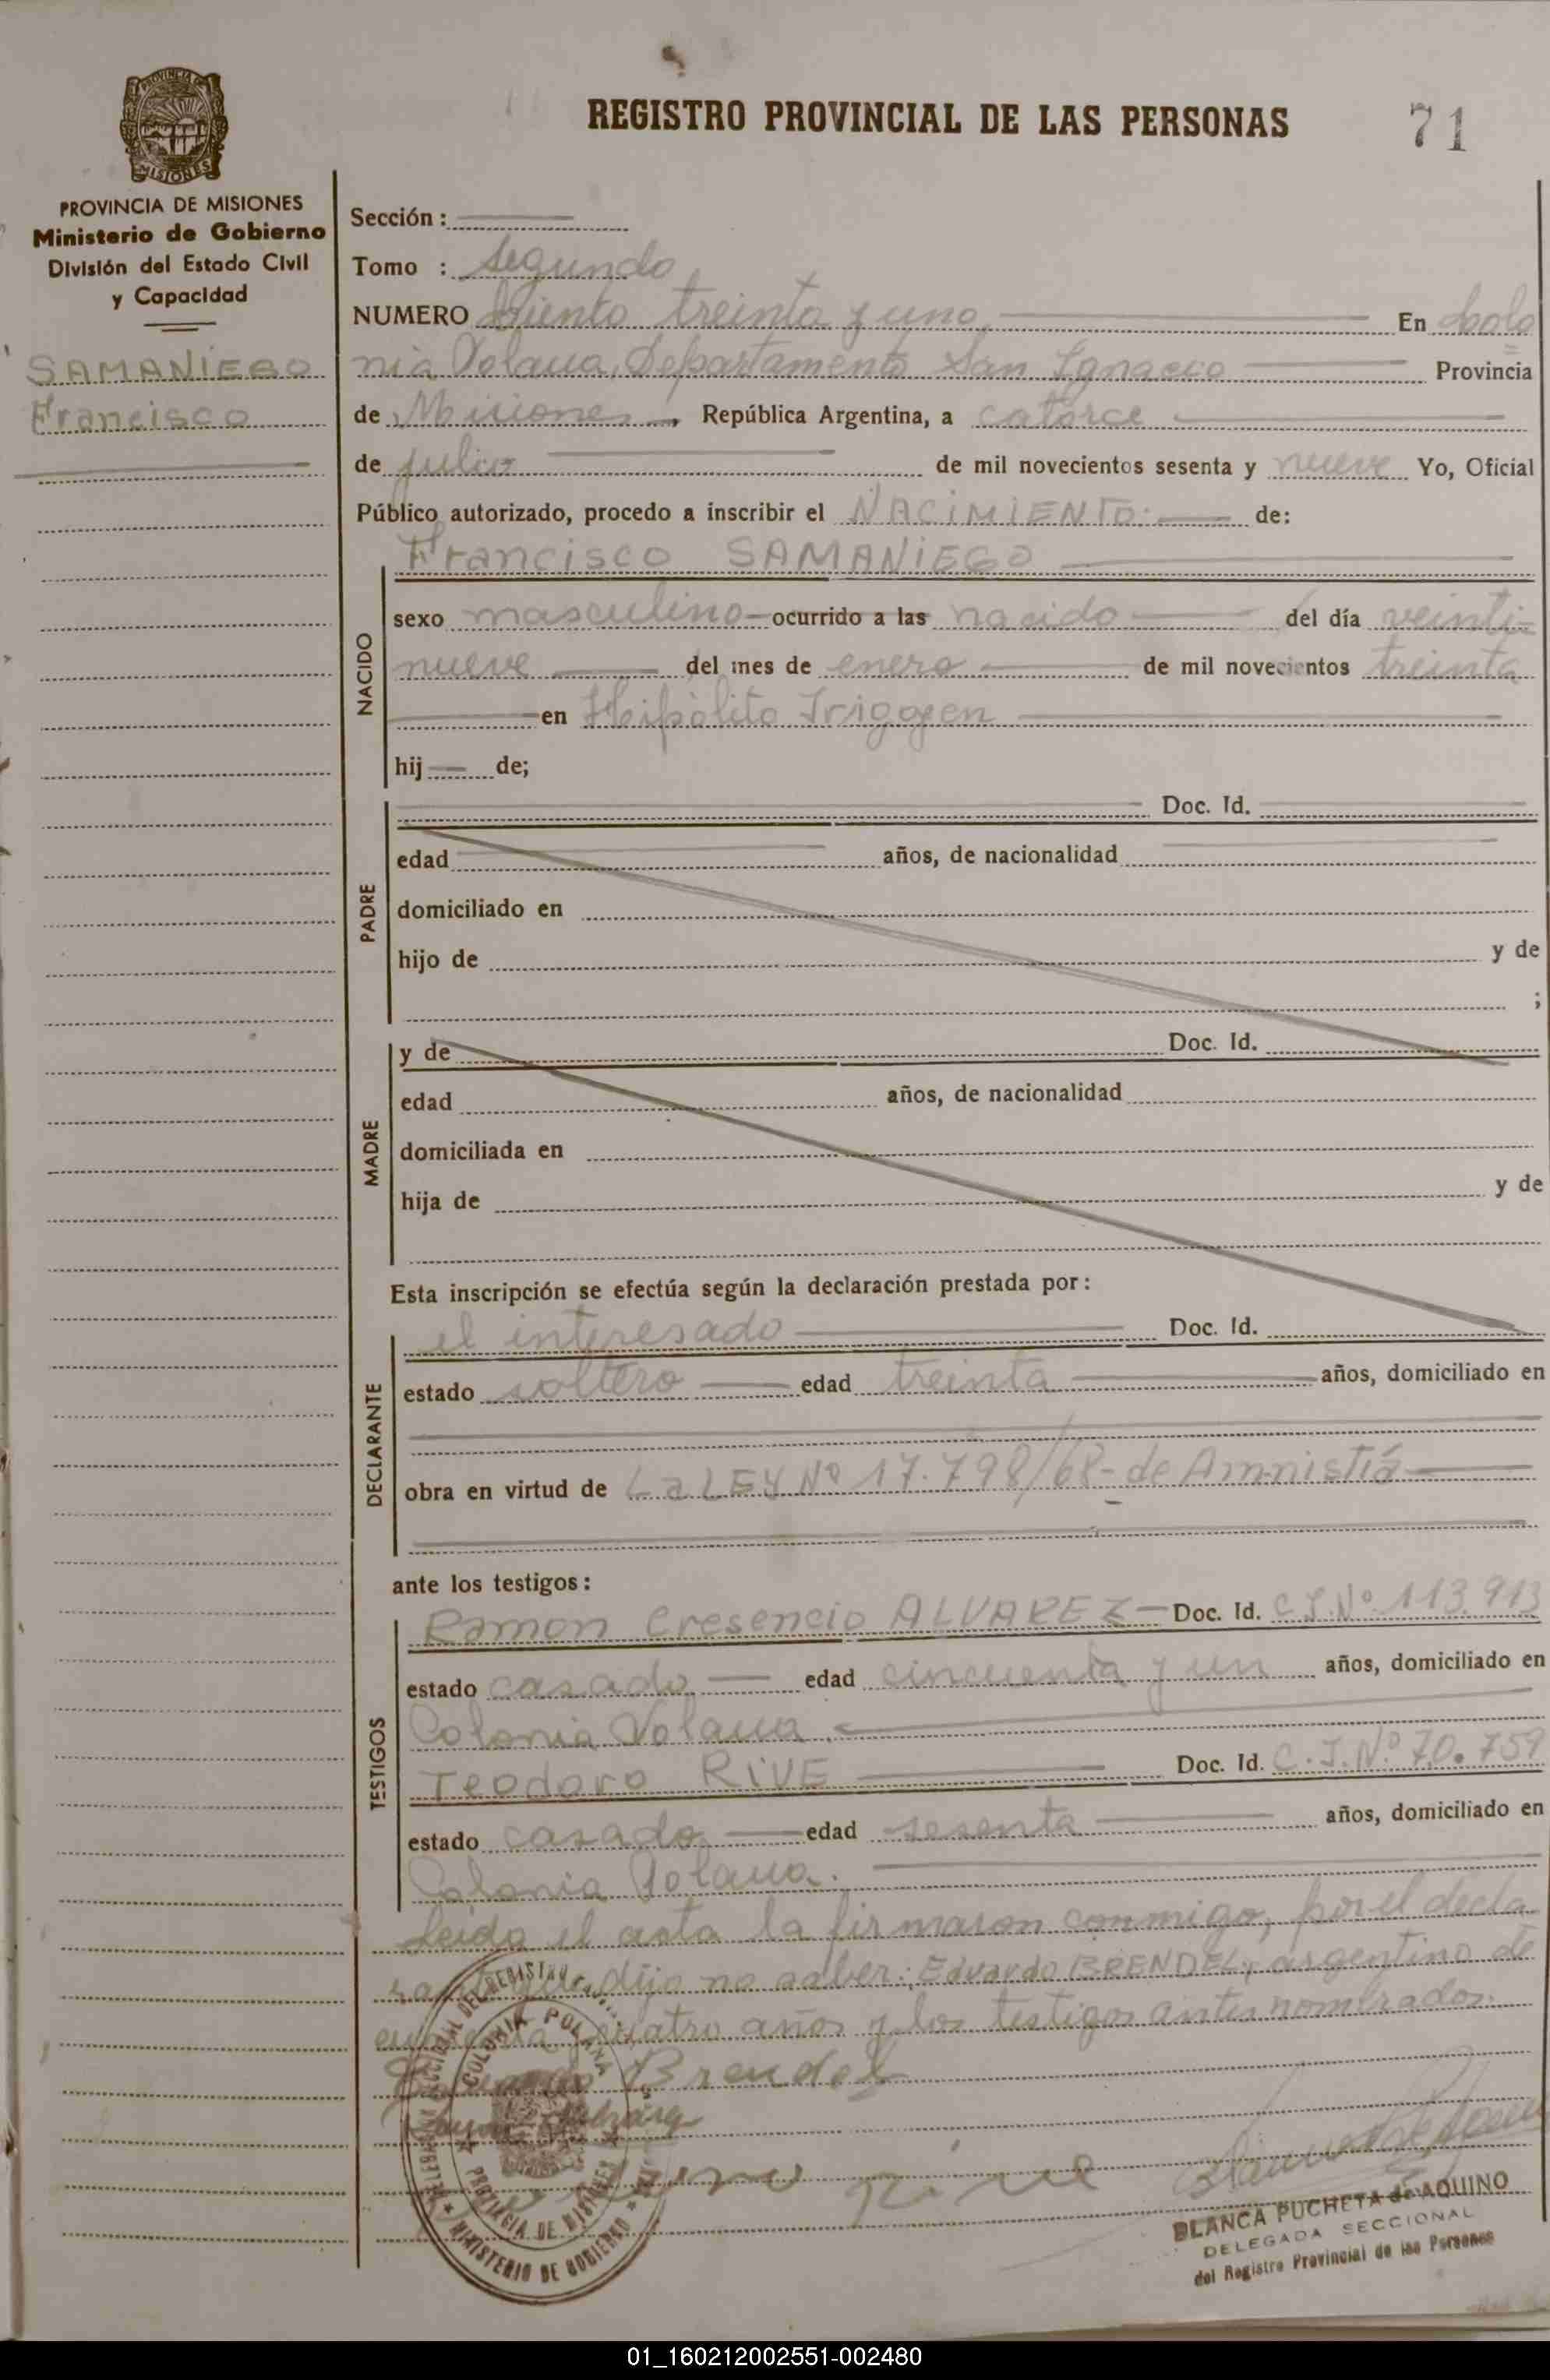 REGISTRO PROVINCIAL DE LAS PERSONAS
71
PROVINCIA DE MISIONES
Ministerio de Gobierno
División del Estado Civil
y Capacidad
SAMANIEGO
Francisco
Sección :
Tomo : segundo
NUMERO Ciento treinta y uno En Colo
nia Polaua, Departamento San Ignacio Provincia
de Misiones, República Argentina, a catorce
de julio de mil novecientos sesenta y nueve Yo, Oficial
Público autorizado, procedo a inscribir el NACIMIENTO: de:
Francisco SAMANIEGO
NACIDO
sexo masculino ocurrido a las nacido del día veinti-
nueve del mes de enero de mil novecientos treinta
en Hipòlito Irigoyen
hij de;
PADRE
Doc. Id.
edad años, de nacionalidad
domiciliado en
hijo de y de
;
MADRE
y de Doc. Id.
edad años, de nacionalidad
domiciliada en
hija de y de
Esta inscripción se efectúa según la declaración prestada por:
DECLARANTE
el interesado Doc. Id.
estado soltero edad treinta años, domiciliado en
obra en virtud de La LEY Nº 17.798/68- de Amnistiá
ante los testigos:
TESTIGOS
Ramon Cresencio ALVAREZ Doc. Id. C.I.Nº 113.913
estado casado edad cincuenta y un años, domiciliado en
Colonia Polaua.
Teodoro RIVE Doc. Id. C.I.Nº 70.759
estado casado edad sesenta años, domiciliado en
Colonia Polaua.
Leida el acta la firmaron conmigo, por el decla
dijo no saber: Eduardo BRENDEL, argentino de
cuatro años y los testigos antes nombrados.
Brendel
COLONIA POLANA
PROVINCIA DE MISIONES
MINISTERIO DE GOBIERNO
BLANCA PUCHETA de AQUINO
DELEGADA SECCIONAL
del Registro Provincial de las Personas
01_160212002551-002480